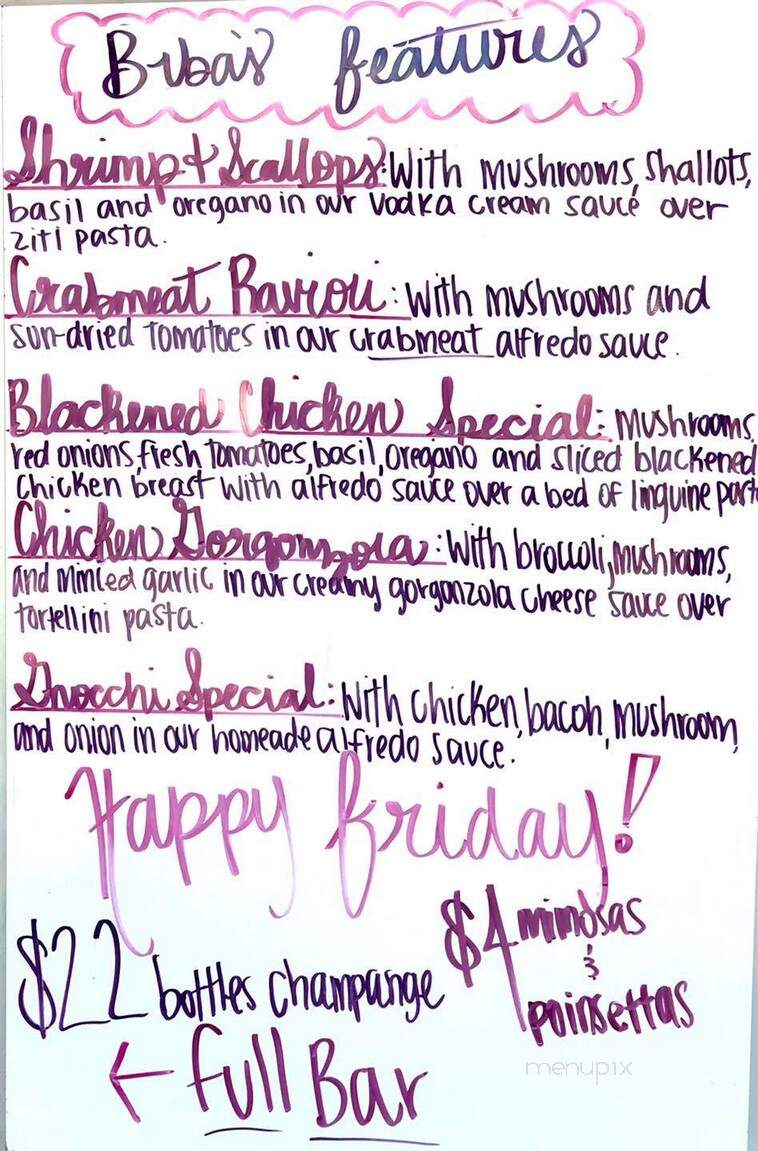 Biba's features
Shrimp & Scallops: With mushrooms, shallots,
basil and oregano in our vodka cream sauce over
ziti pasta.
Crabmeat Ravioli: With mushrooms and
sun-dried tomatoes in our crabmeat alfredo sauce.
Blackened Chicken Special: mushrooms
red onions, fresh tomatoes, basil, oregano and sliced blackened
chicken breast with alfredo sauce over a bed of linguine past
Chicken Gorgonzola: With broccoli, mushrooms,
and minced garlic in our creamy gorgonzola cheese sauce over
tortellini pasta.
Gnocchi Special: With chicken, bacon, mushroom,
and onion in our homeade alfredo sauce.
Happy friday!
$4 mimosas
&
poinsettas
$22 bottles champange
← full Bar
menupix